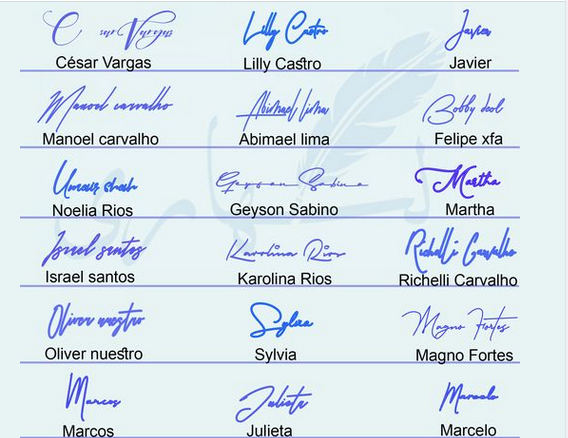 C sar Vargas Lilly Castro Javier
César Vargas Lilly Castro Javier
Manoel carvalho Abimael lima Bobby deol
Manoel carvalho Abimael lima Felipe xfa
Umais shah Geyson Sabino Martha
Noelia Rios Geyson Sabino Martha
Israel santos Karolina Rios Richelli Carvalho
Israel santos Karolina Rios Richelli Carvalho
Oliver nuestro Sylvia Magno Fortes
Oliver nuestro Sylvia Magno Fortes
Marcos Julieta Marcelo
Marcos Julieta Marcelo